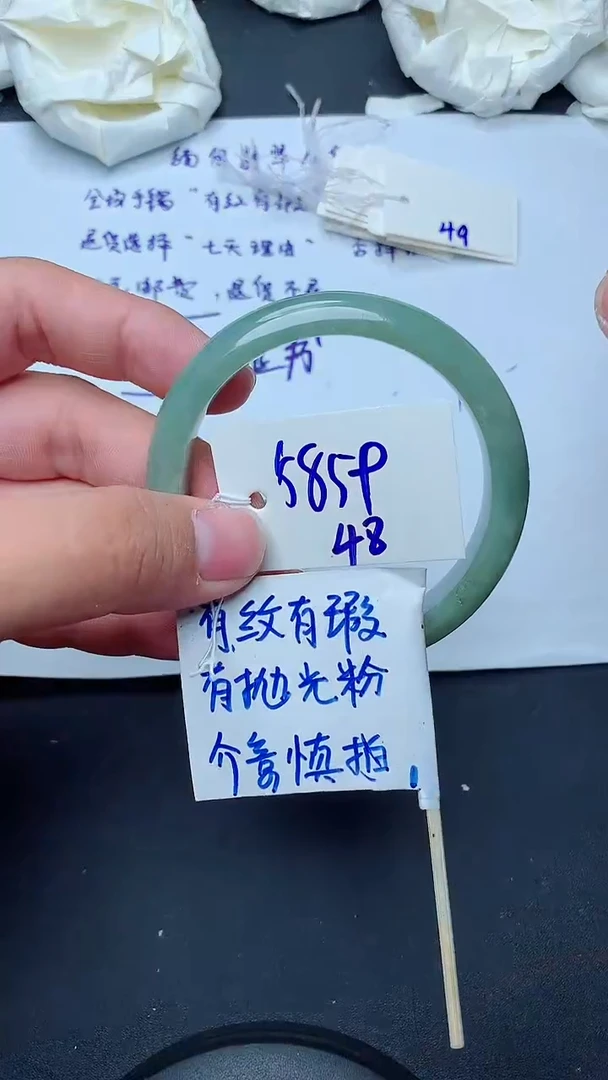 49
全场手镯“有纹有瑕
退货选择“七天理由”
邮费，退货不
证书
585P
48
有纹有瑕
有抛光粉
介意慎拍！